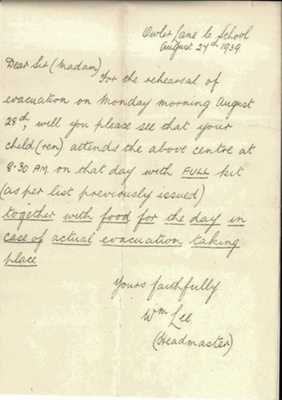 Owler Lane C School
August 27th 1939
Dear Sir (Madam)
For the rehearsal of
evacuation on Monday morning August
28th, will you please see that your
child (ren) attends the above centre at
8.30 A.M. on that day with FULL kit
(as per list previously issued)
together with food for the day in
case of actual evacuation taking
place
Yours faithfully
Wm Lee
(Headmaster)